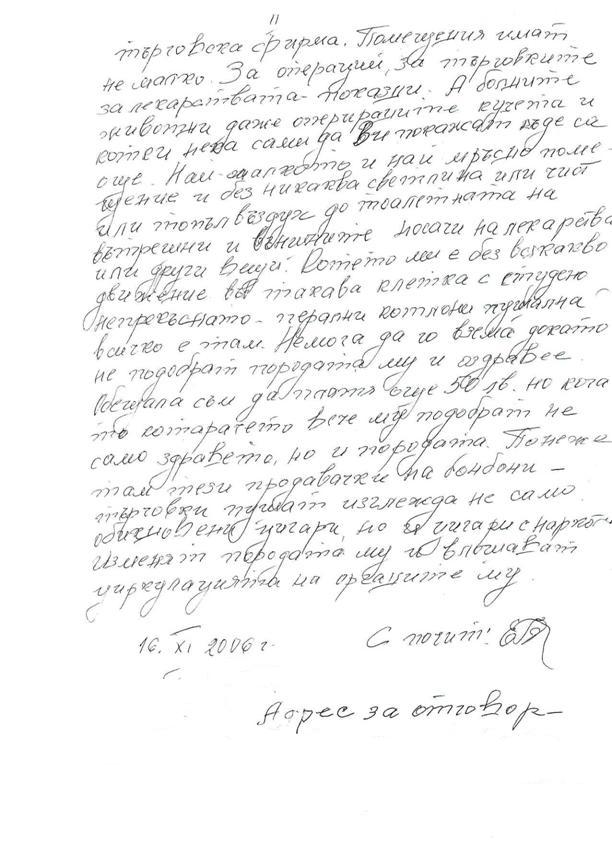 11
търговска фирма. Помещения имат
не малко. За операции, за търговките
за лекарствата - показни. А болните
животни даже оперираните кучета и
котки нека сами да Ви покажат къде са
още. Най-малкото и най мръсно поме-
щение и без никаква светлина или чист
или топъл въздух до тоалетната на
вътрешни и външните носачи на лекарства
или други вещи. Котето ми е без всякакво
движение в такава клетка с студено
непрекъснато - перални котлони пушалня
всичко е там. Немога да го взема докато
не подобрат породата му и оздравее.
Обещала съм да платя още 50 лв. но кога
то котарачето вече му подобрат не
само здравето, но и породата. Понеже
там тези продавачки на бонбони -
търговки пушат изглежда не само
обикновени цигари, но и цигари с нарко-
Изменят породата му и влошават
циркулацията на органите му.
16. XI 2006 г.
С почит:
Адрес за отговор -